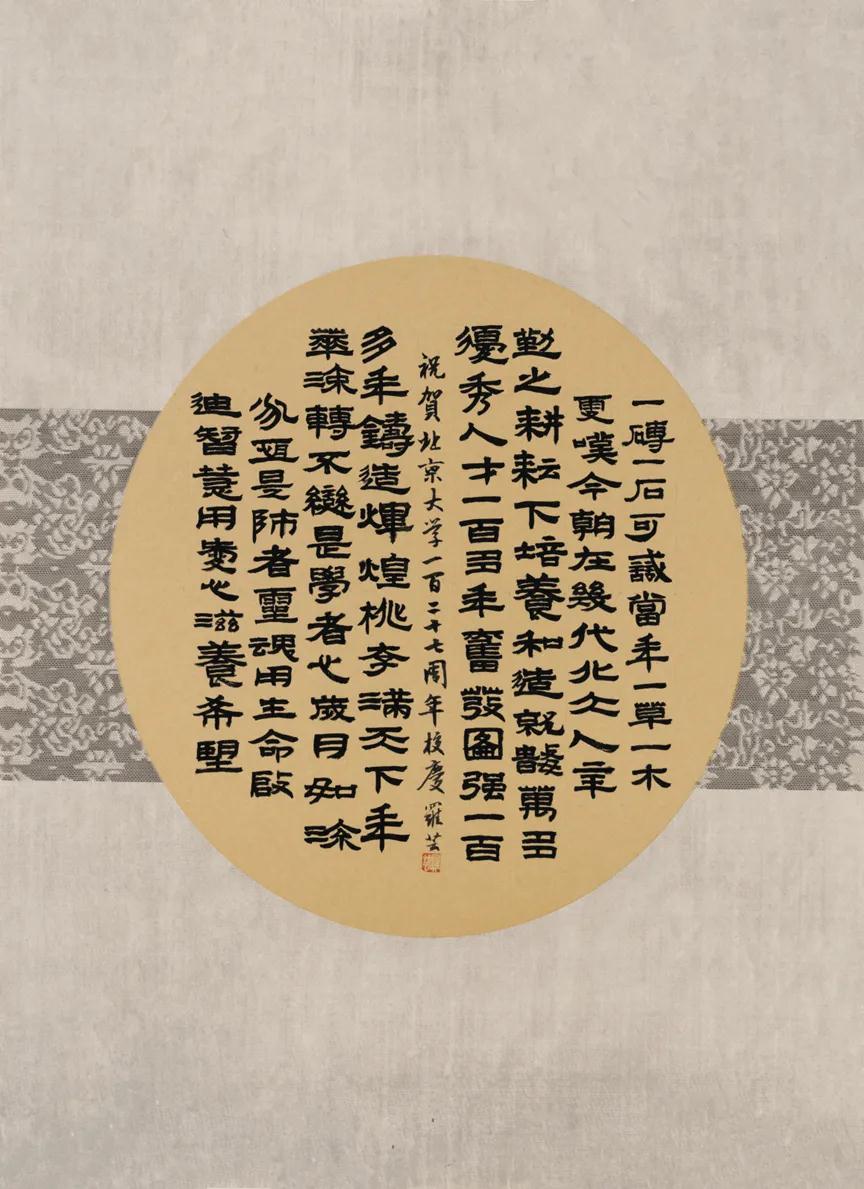 一磚一石可識當年一草一木
更嘆今朝在幾代北大人辛
勤之耕耘下培養和造就數萬多
優秀人才一百多年奮發圖强一百
多年鑄造煇煌桃李滿天下年
華流轉不變是學者心歲月如流
永恆是師者靈魂用生命啟
迪智慧用愛心滋養希望
祝賀北京大学一百二十七周年校慶 羅芸